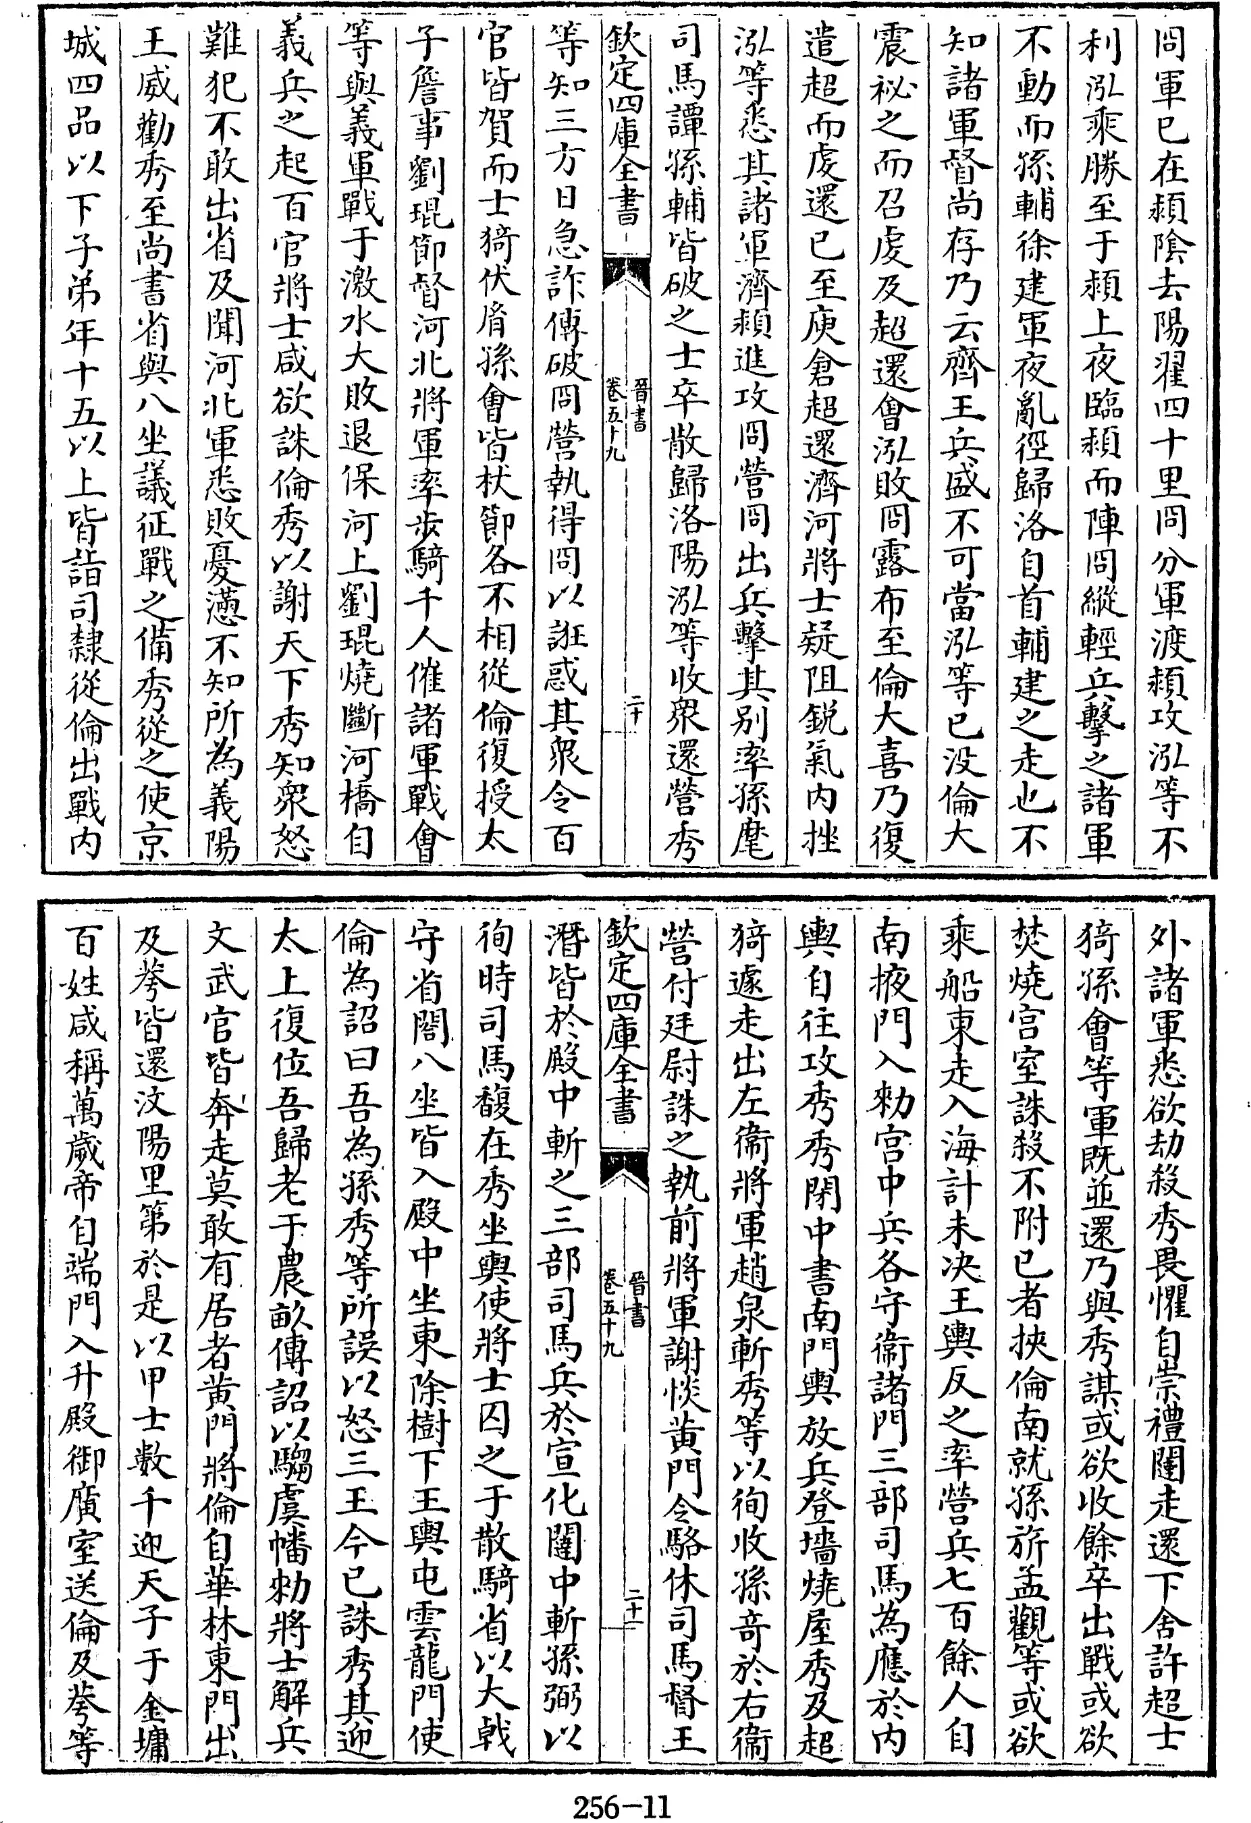 冏軍已在潁隂去陽翟四十里冏分軍渡潁攻泓等不
利泓乘勝至于潁上夜臨潁而陣冏縱輕兵擊之諸軍
不動而孫輔徐建軍夜亂徑歸洛自首輔建之走也不
知諸軍督尚存乃云齊王兵盛不可當泓等已没倫大
震祕之而召䖍及超還㑹泓敗冏露布至倫大喜乃復
遣超而䖍還已至庾倉超還濟河將士疑阻鋭氣内挫
泓等悉其諸軍濟潁進攻冏營冏出兵擊其别率孫髦
司馬譚孫輔皆破之士卒散歸洛陽泓等收衆還營秀
欽定四庫全書
晉書
卷五十九
二十
等知三方日急詐傳破冏營執得冏以誑惑其衆令百
官皆賀而士猗伏胤孫㑹皆杖節各不相從倫復授太
子詹事劉琨節督河北將軍率步騎千人催諸軍戰㑹
等與義軍戰于激水大敗退保河上劉琨燒斷河橋自
義兵之起百官將士咸欲誅倫秀以謝天下秀知衆怒
難犯不敢出省及聞河北軍悉敗憂懣不知所為義陽
王威勸秀至尚書省與八坐議征戰之備秀從之使京
城四品以下子弟年十五以上皆詣司隸從倫出戰内
外諸軍悉欲劫殺秀畏懼自崇禮闥走還下舍許超士
猗孫㑹等軍既並還乃與秀謀或欲收餘卒出戰或欲
焚燒宫室誅殺不附已者挾倫南就孫旂孟觀等或欲
乘船東走入海計未决王輿反之率營兵七百餘人自
南掖門入勑宫中兵各守衛諸門三部司馬為應於内
輿自往攻秀秀閉中書南門輿放兵登墻燒屋秀及超
猗遽走出左衞將軍趙泉斬秀等以徇收孫奇於右衞
營付廷尉誅之執前將軍謝惔黄門令駱休司馬督王
欽定四庫全書
晉書
卷五十九
二十一
潛皆於殿中斬之三部司馬兵於宣化闥中斬孫弼以
徇時司馬馥在秀坐輿使將士囚之于散騎省以大戟
守省閤八坐皆入殿中坐東除樹下王輿屯雲龍門使
倫為詔曰吾為孫秀等所誤以怒三王今已誅秀其迎
太上復位吾歸老于農畝傳詔以騶虞幡勑將士解兵
文武官皆奔走莫敢有居者黄門將倫自華林東門出
及荂皆還汶陽里第於是以甲士數千迎天子于金墉
百姓咸稱萬歲帝自端門入升殿御廣室送倫及荂等
256-11